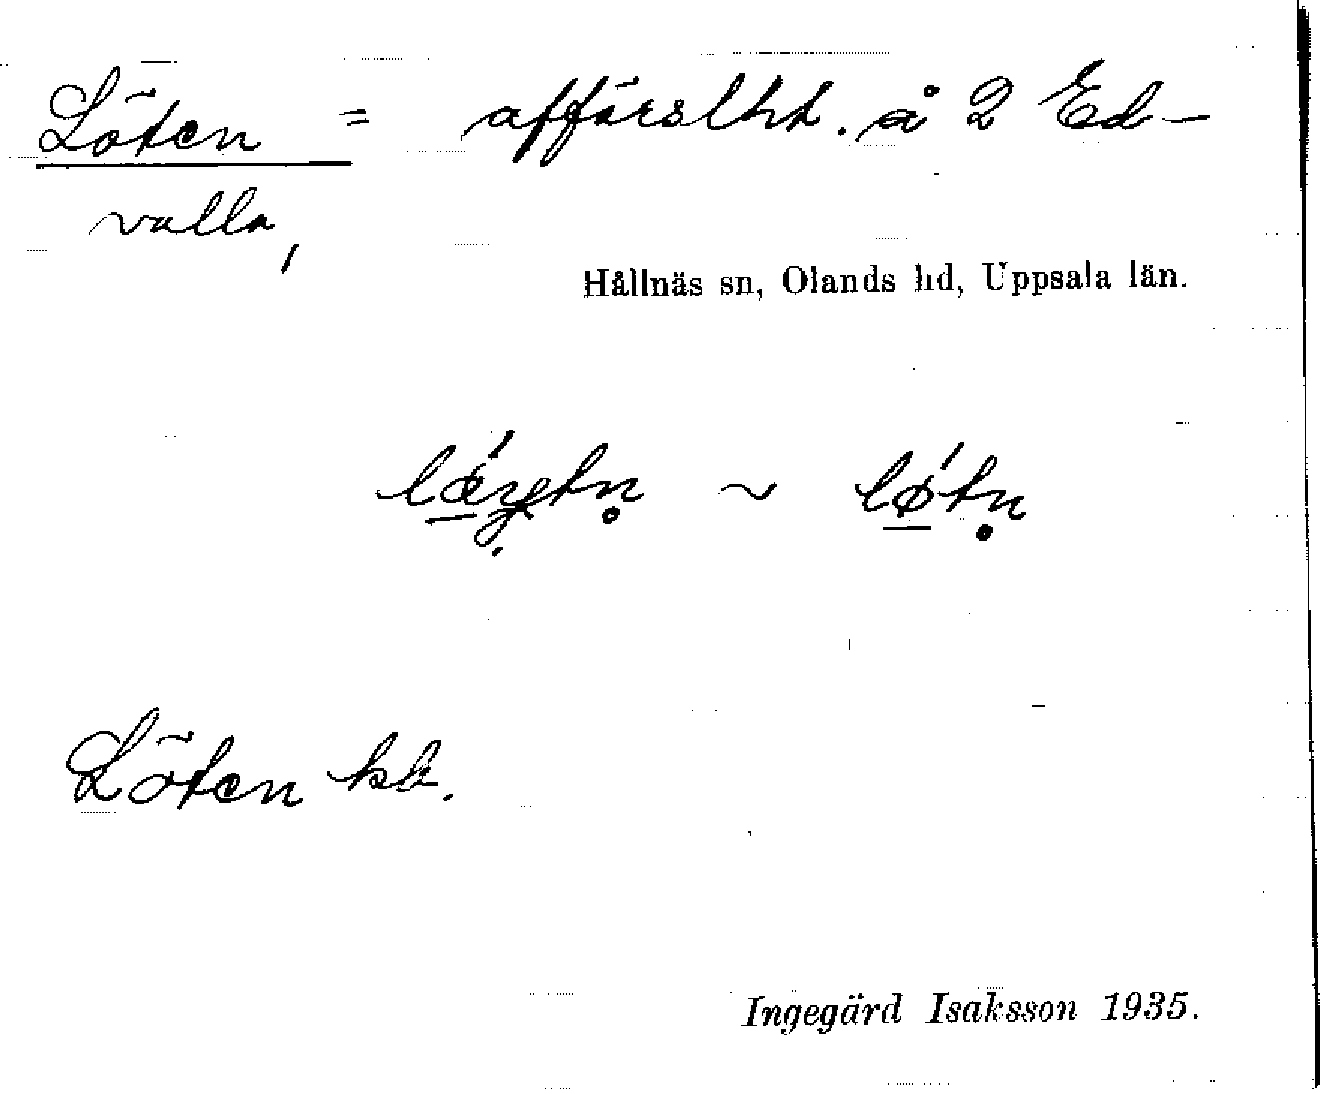 Löten = affärslht. å 2 Ed-
valla,
Hållnäs sn, Olands hd, Uppsala län.
lǿ̨tn̥ ~ lǿtn̥
Löten kb.
Ingegärd Isaksson 1935.